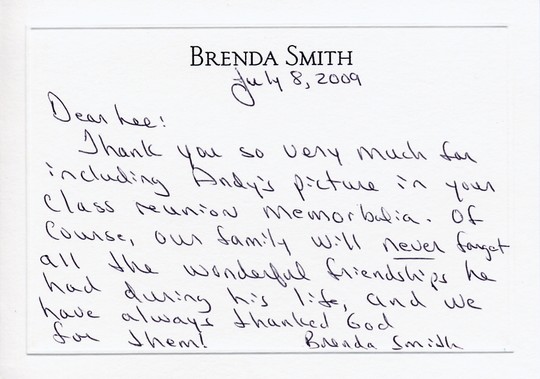 BRENDA SMITH
July 8, 2009
Dear Lee!
Thank you so very much for
including Andy's picture in your
class reunion memorbalia. Of
course, our family will never forget
all the wonderful friendships he
had during his life, and we
have always thanked God
for them! Brenda Smith